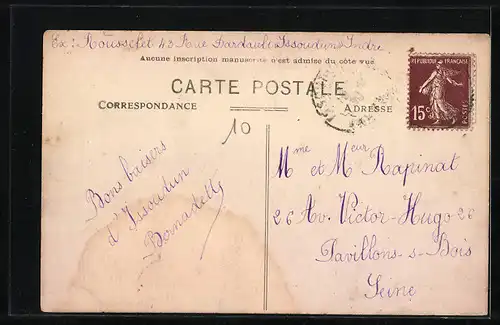 Ex: Rousselet 43 Rue Dardault Issoudun Indre
Aucune inscription manuscrite n'est admise du côté vue
CARTE POSTALE
CORRESPONDANCE
ADRESSE
RÉPUBLIQUE FRANÇAISE
15c
POSTES
10
Bons baisers
d'Issoudun
Bernadette
Mme et Meur Rapinat
26 Av. Victor-Hugo 26
Pavillons-s-Bois
Seine